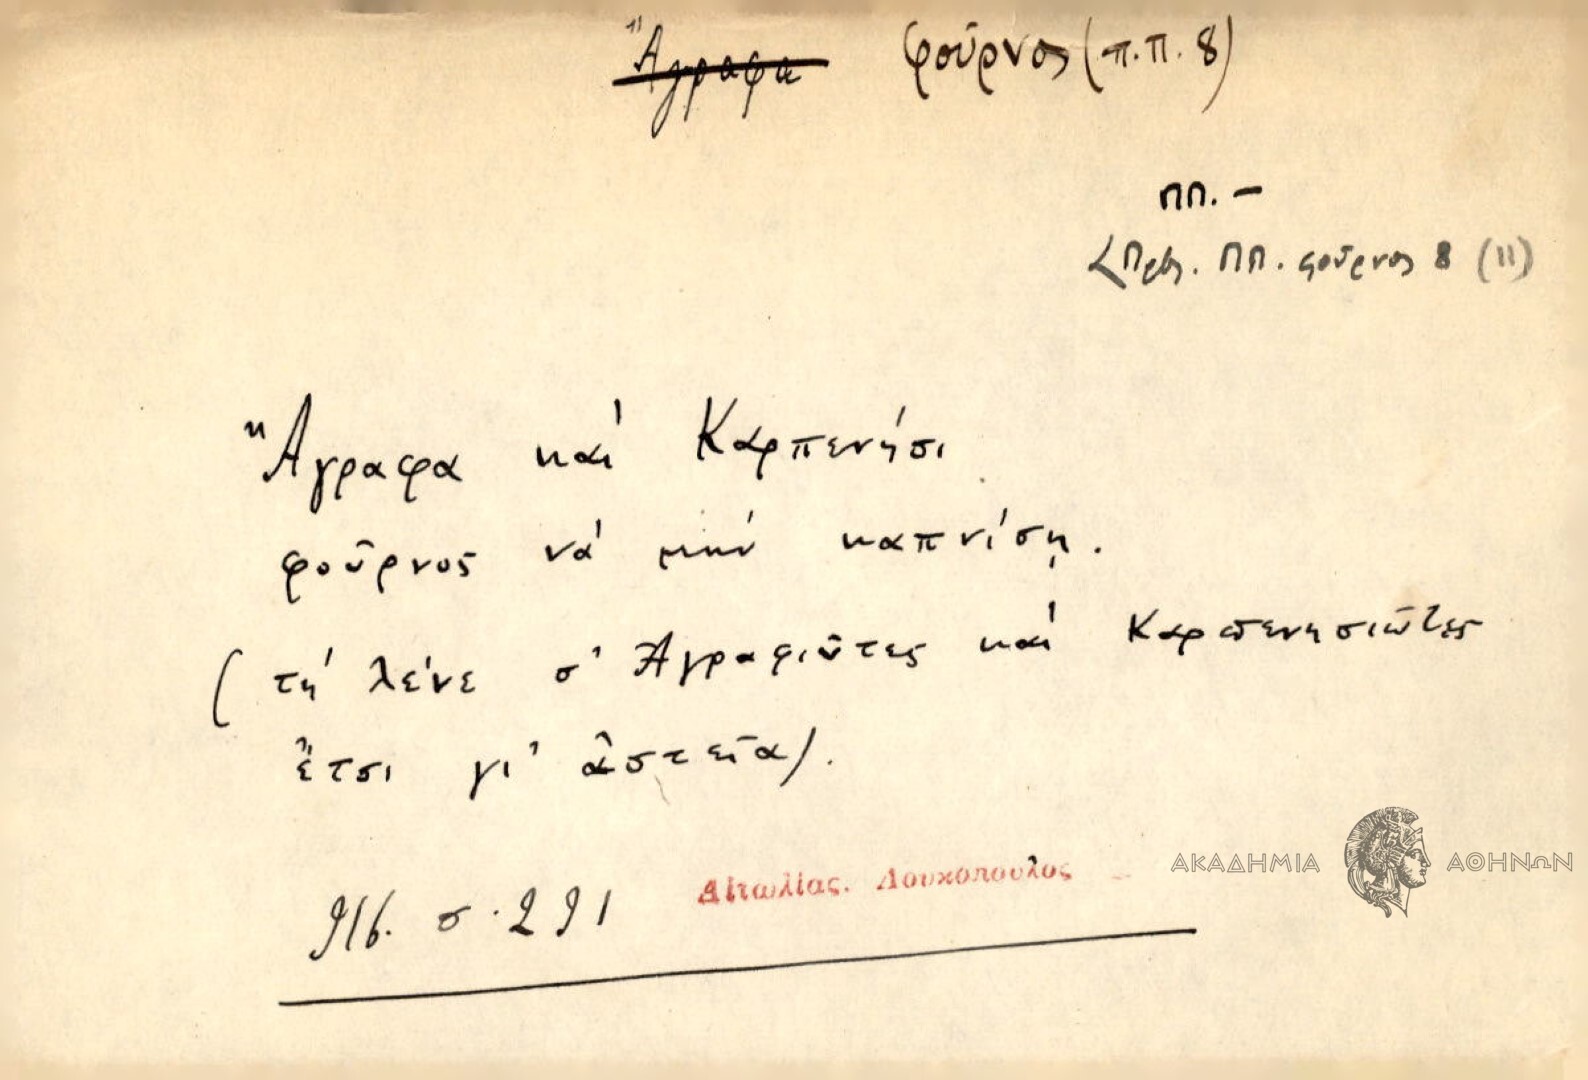 Ἄγραφα φοῦρνος (π.π. 8)
ΠΠ. –
ΠΠ. φοῦρνος 8 (11)
Ἄγραφα καί Καρπενήσι
φοῦρνος νά μήν καπνίσῃ.
(τή λένε σ' Ἀγραφιῶτες καί Καρπενησιῶτες
ἔτσι γι' ἀστεῖα).
916. σ. 291 Αἰτωλίας. Λουκόπουλος
ΑΚΑΔΗΜΙΑ ΑΘΗΝΩΝ